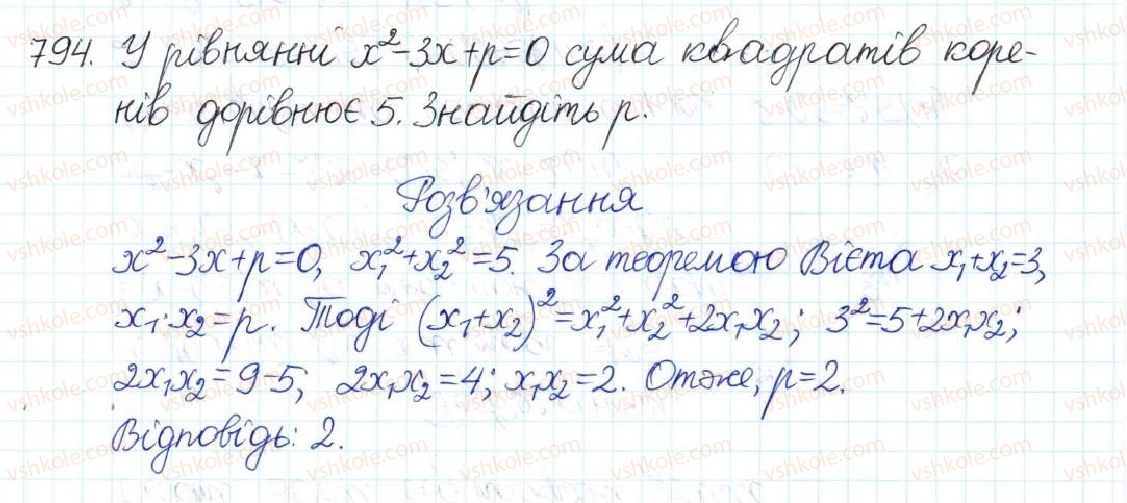 794. У рівнянні x²-3x+p=0 сума квадратів коре-
нів дорівнює 5. Знайдіть p.
Розв'язання
x²-3x+p=0, x₁²+x₂²=5. За теоремою Вієта x₁+x₂=3,
x₁·x₂=p. Тоді (x₁+x₂)²=x₁²+x₂²+2x₁x₂; 3²=5+2x₁x₂;
2x₁x₂=9-5; 2x₁x₂=4; x₁x₂=2. Отже, p=2.
Відповідь: 2.
vshkole.com